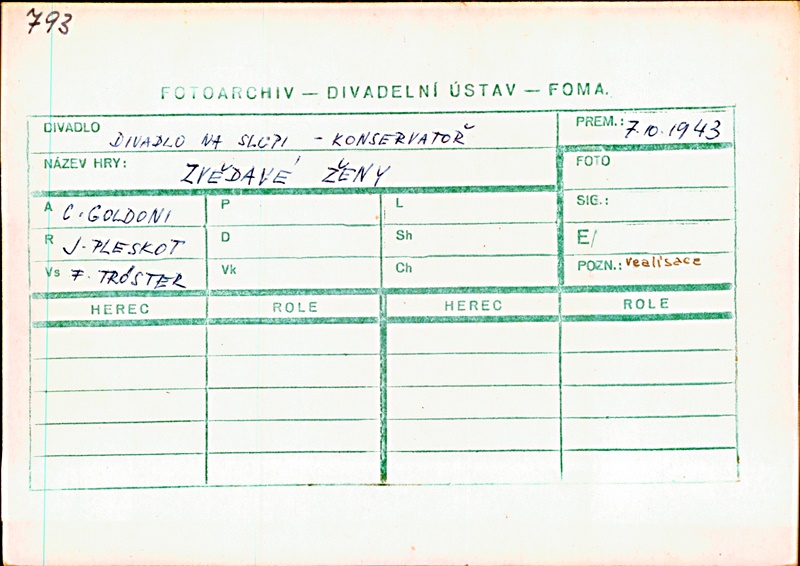 793
FOTOARCHIV — DIVADELNÍ ÚSTAV — FOMA.
DIVADLO DIVADLO NA SLUPI - KONSERVATOŘ
PREM.: 7.10.1943
NÁZEV HRY: ZVĚDAVÉ ŽENY
FOTO
A C. GOLDONI P L SIG.:
R J. PLESKOT D Sh E/
Vs F. TRÖSTER Vk Ch POZN.: realisace
HEREC ROLE HEREC ROLE